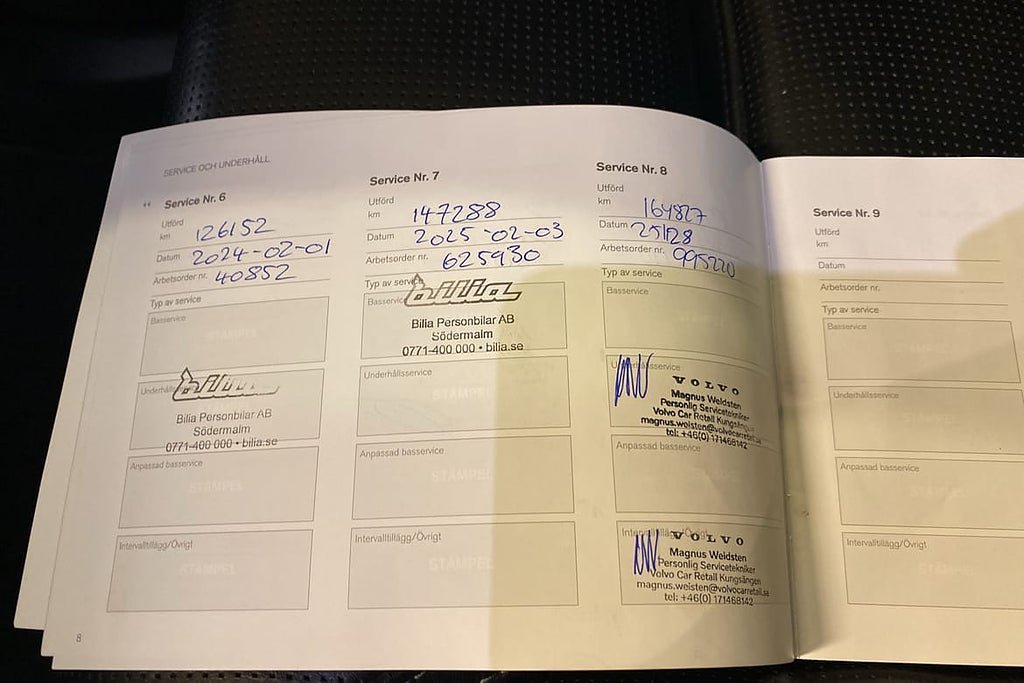 SERVICE OCH UNDERHÅLL
Service Nr. 6
Utförd
km 126152
Datum 2024-02-01
Arbetsorder nr. 40852
Typ av service
Basservice
STÄMPEL
bilia
Bilia Personbilar AB
Södermalm
0771-400 000 • bilia.se
Anpassad basservice
STÄMPEL
Intervalltillägg/Övrigt
STÄMPEL
8
Service Nr. 7
Utförd
km 147288
Datum 2025-02-03
Arbetsorder nr. 625930
Typ av service
Basservice
bilia
Bilia Personbilar AB
Södermalm
0771-400 000 • bilia.se
Underhållsservice
Anpassad basservice
STÄMPEL
Intervalltillägg/Övrigt
STÄMPEL
Service Nr. 8
Utförd
km 164827
Datum
Arbetsorder nr. 995220
Typ av service
Basservice
Underhållsservice
VOLVO
Magnus Weidsten
Personlig Servicetekniker
Volvo Car Retail Kungsängen
magnus.weisten@volvocarretail.se
tel: +46(0) 171468142
Anpassad basservice
Intervalltillägg/Övrigt
VOLVO
Magnus Weidsten
Personlig Servicetekniker
Volvo Car Retail Kungsängen
magnus.weisten@volvocarretail.se
tel: +46(0) 171468142
Service Nr. 9
Utförd
km
Datum
Arbetsorder nr.
Typ av service
Basservice
Underhållsservice
Anpassad basservice
Intervalltillägg/Övrigt